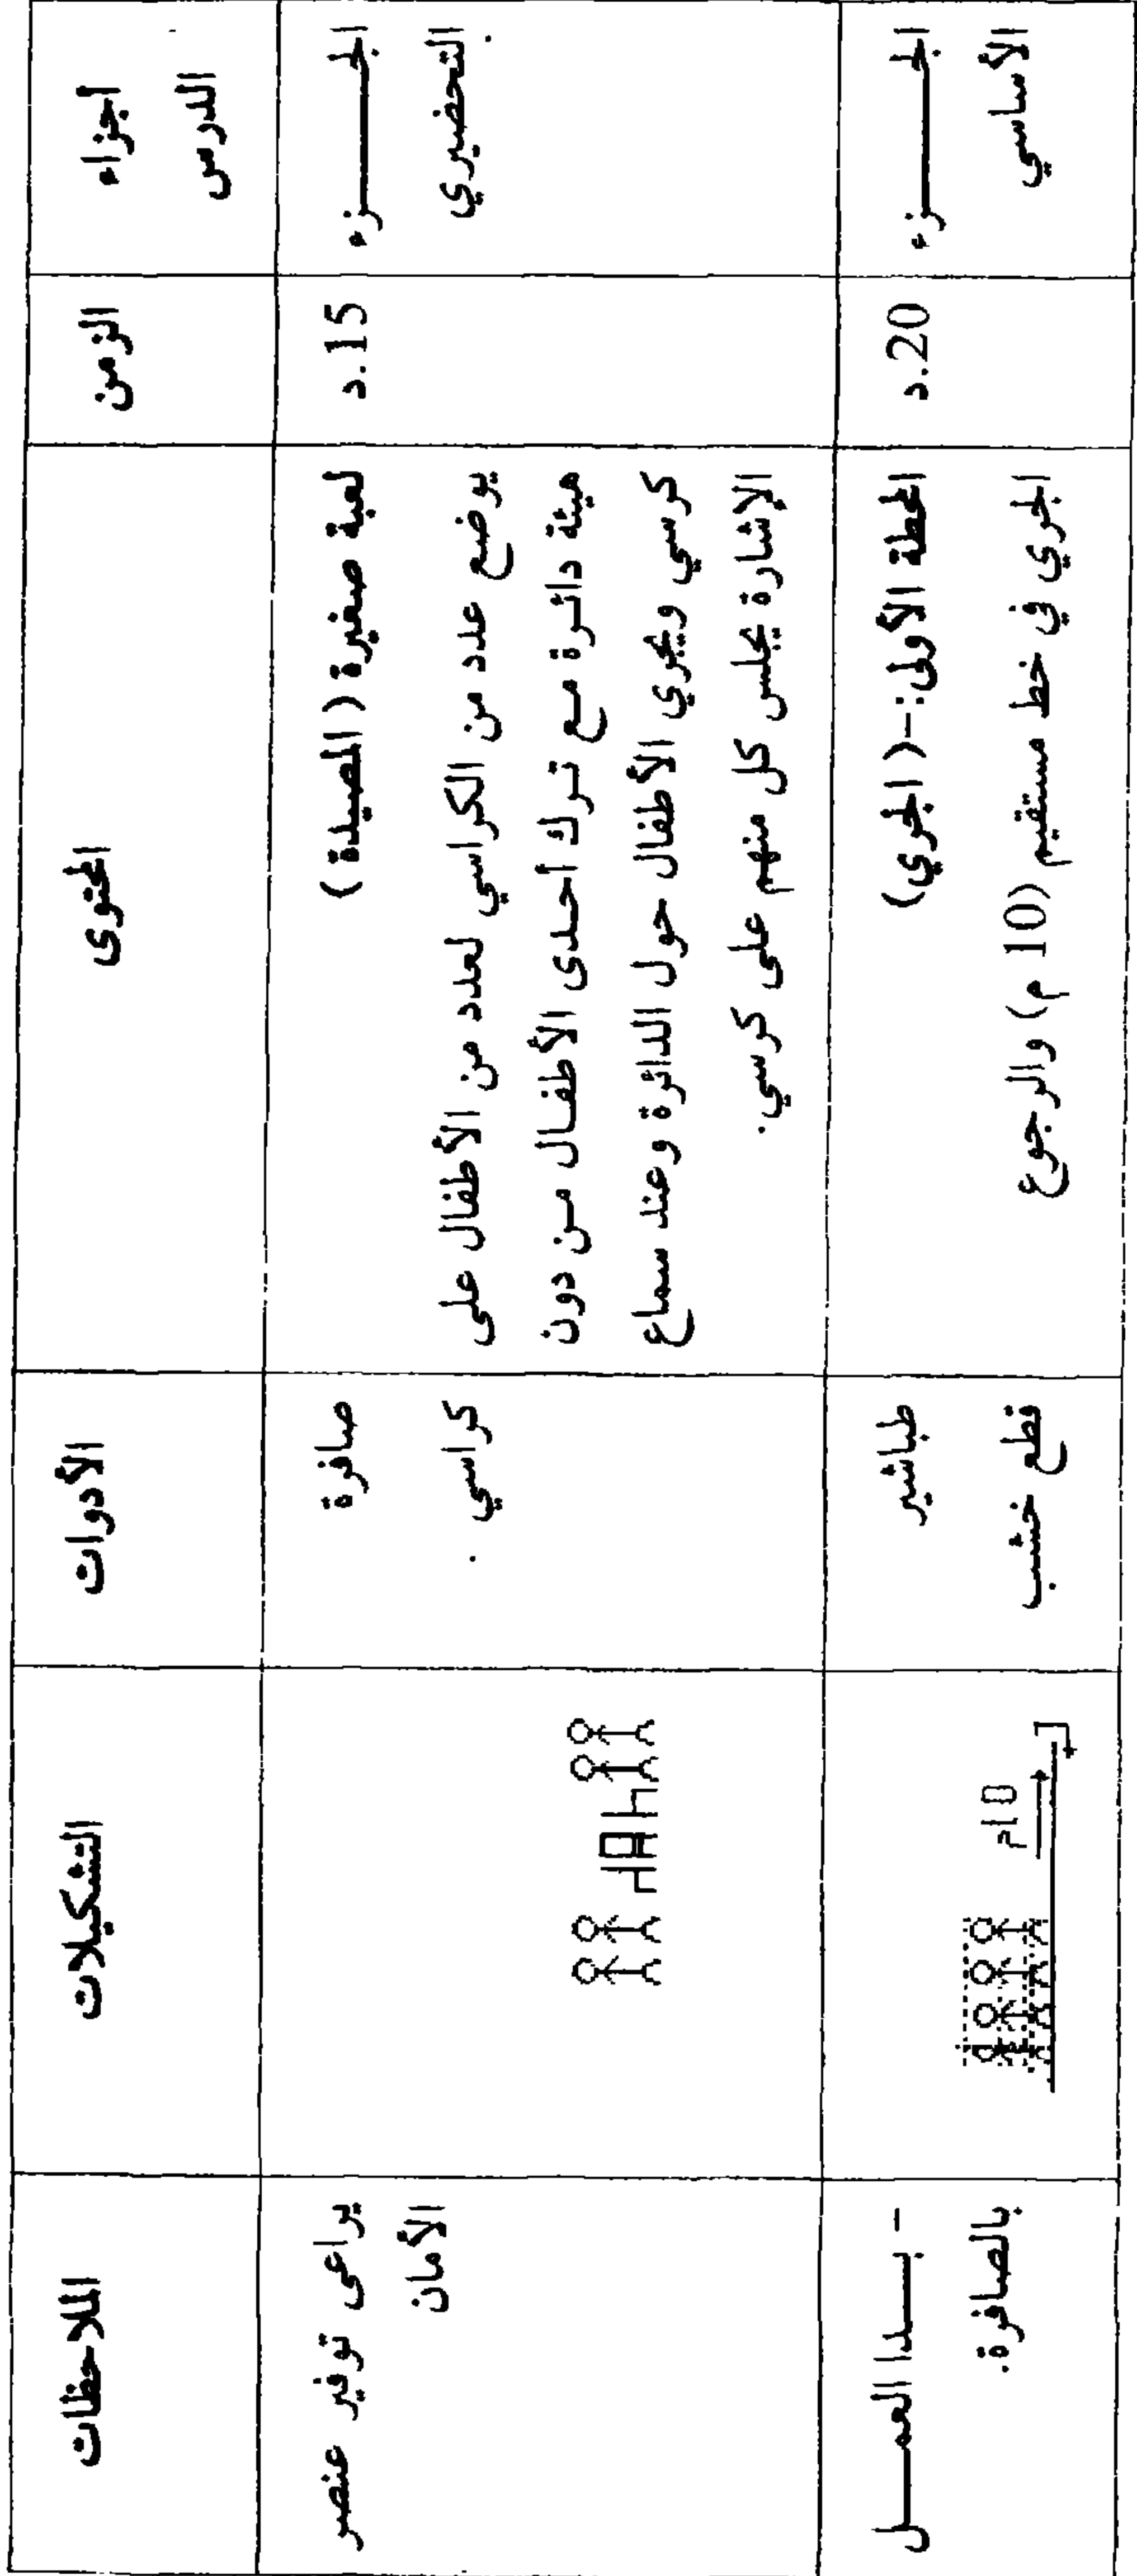 أجزاء
الدرس
الزمن
المحتوى
الأدوات
التشكيلات
الملاحظات
الجـــــزء
التحضيري
15.د
لعبة صغيرة (المصيدة)
يوضع عدد من الكراسي لعدد من الأطفال على
هيئة دائرة مع ترك أحدى الأطفال من دون
كرسي ويجري الأطفال حول الدائرة وعند سماع
الإشارة يجلس كل منهم على كرسي.
صافرة
كراسي .
يراعى توفير عنصر
الأمان
الجـــــزء
الأساسي
20.د
المحطة الأولى:-(الجري)
الجري في خط مستقيم (10 م) والرجوع
طباشير
قطع خشب
10م
- بـــدا العمـــل
بالصافرة.